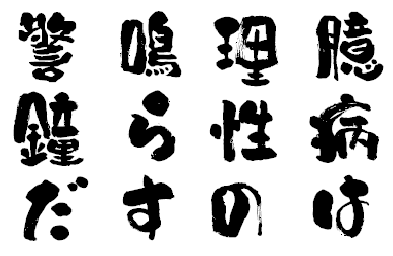 臆病は
理性の
鳴らす
警鐘だ